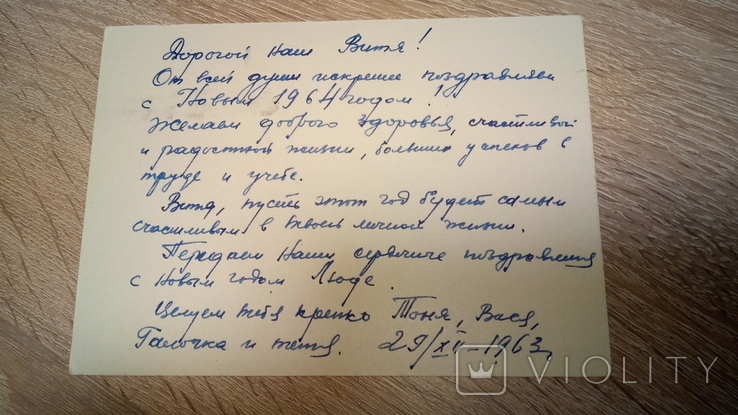 Дорогой наш Витя!
От всей души искренне поздравляем
с Новым 1964 годом!
Желаем доброго здоровья, счастливой
и радостной жизни, больших успехов в
труде и учебе.
Витя, пусть этот год будет самым
счастливым в твоей личной жизни.
Передаем наши сердечные поздравления
с Новым годом Люде.
Целуем тебя крепко Тоня, Вася,
Галочка и тетя. 29/XII-1963г.
VIOLITY